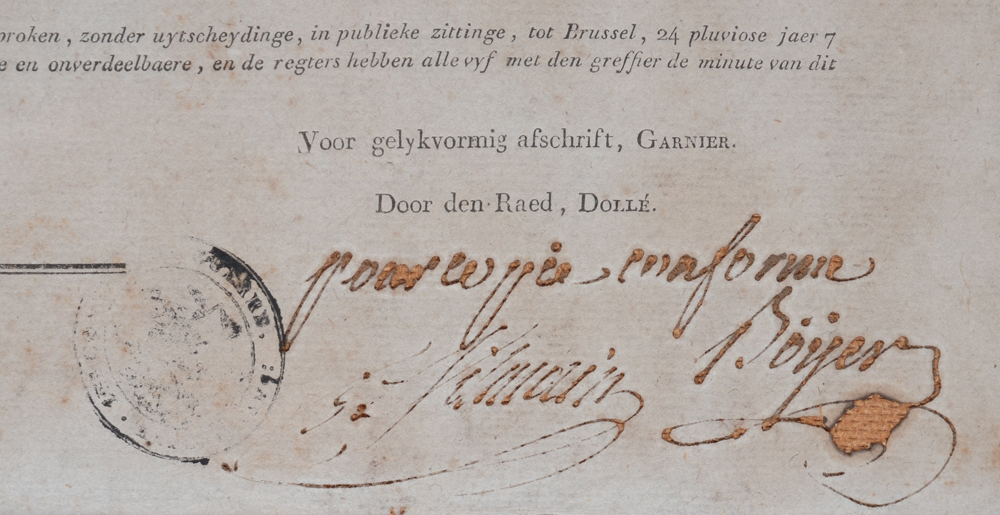 broken, zonder uytscheydinge, in publieke zittinge, tot Brussel, 24 pluviose jaer 7
e en onverdeelbaere, en de regters hebben alle vyf met den greffier de minute van dit
Voor gelykvormig afschrift, GARNIER.
Door den Raed, DOLLÉ.
pour copie conforme
Böÿer